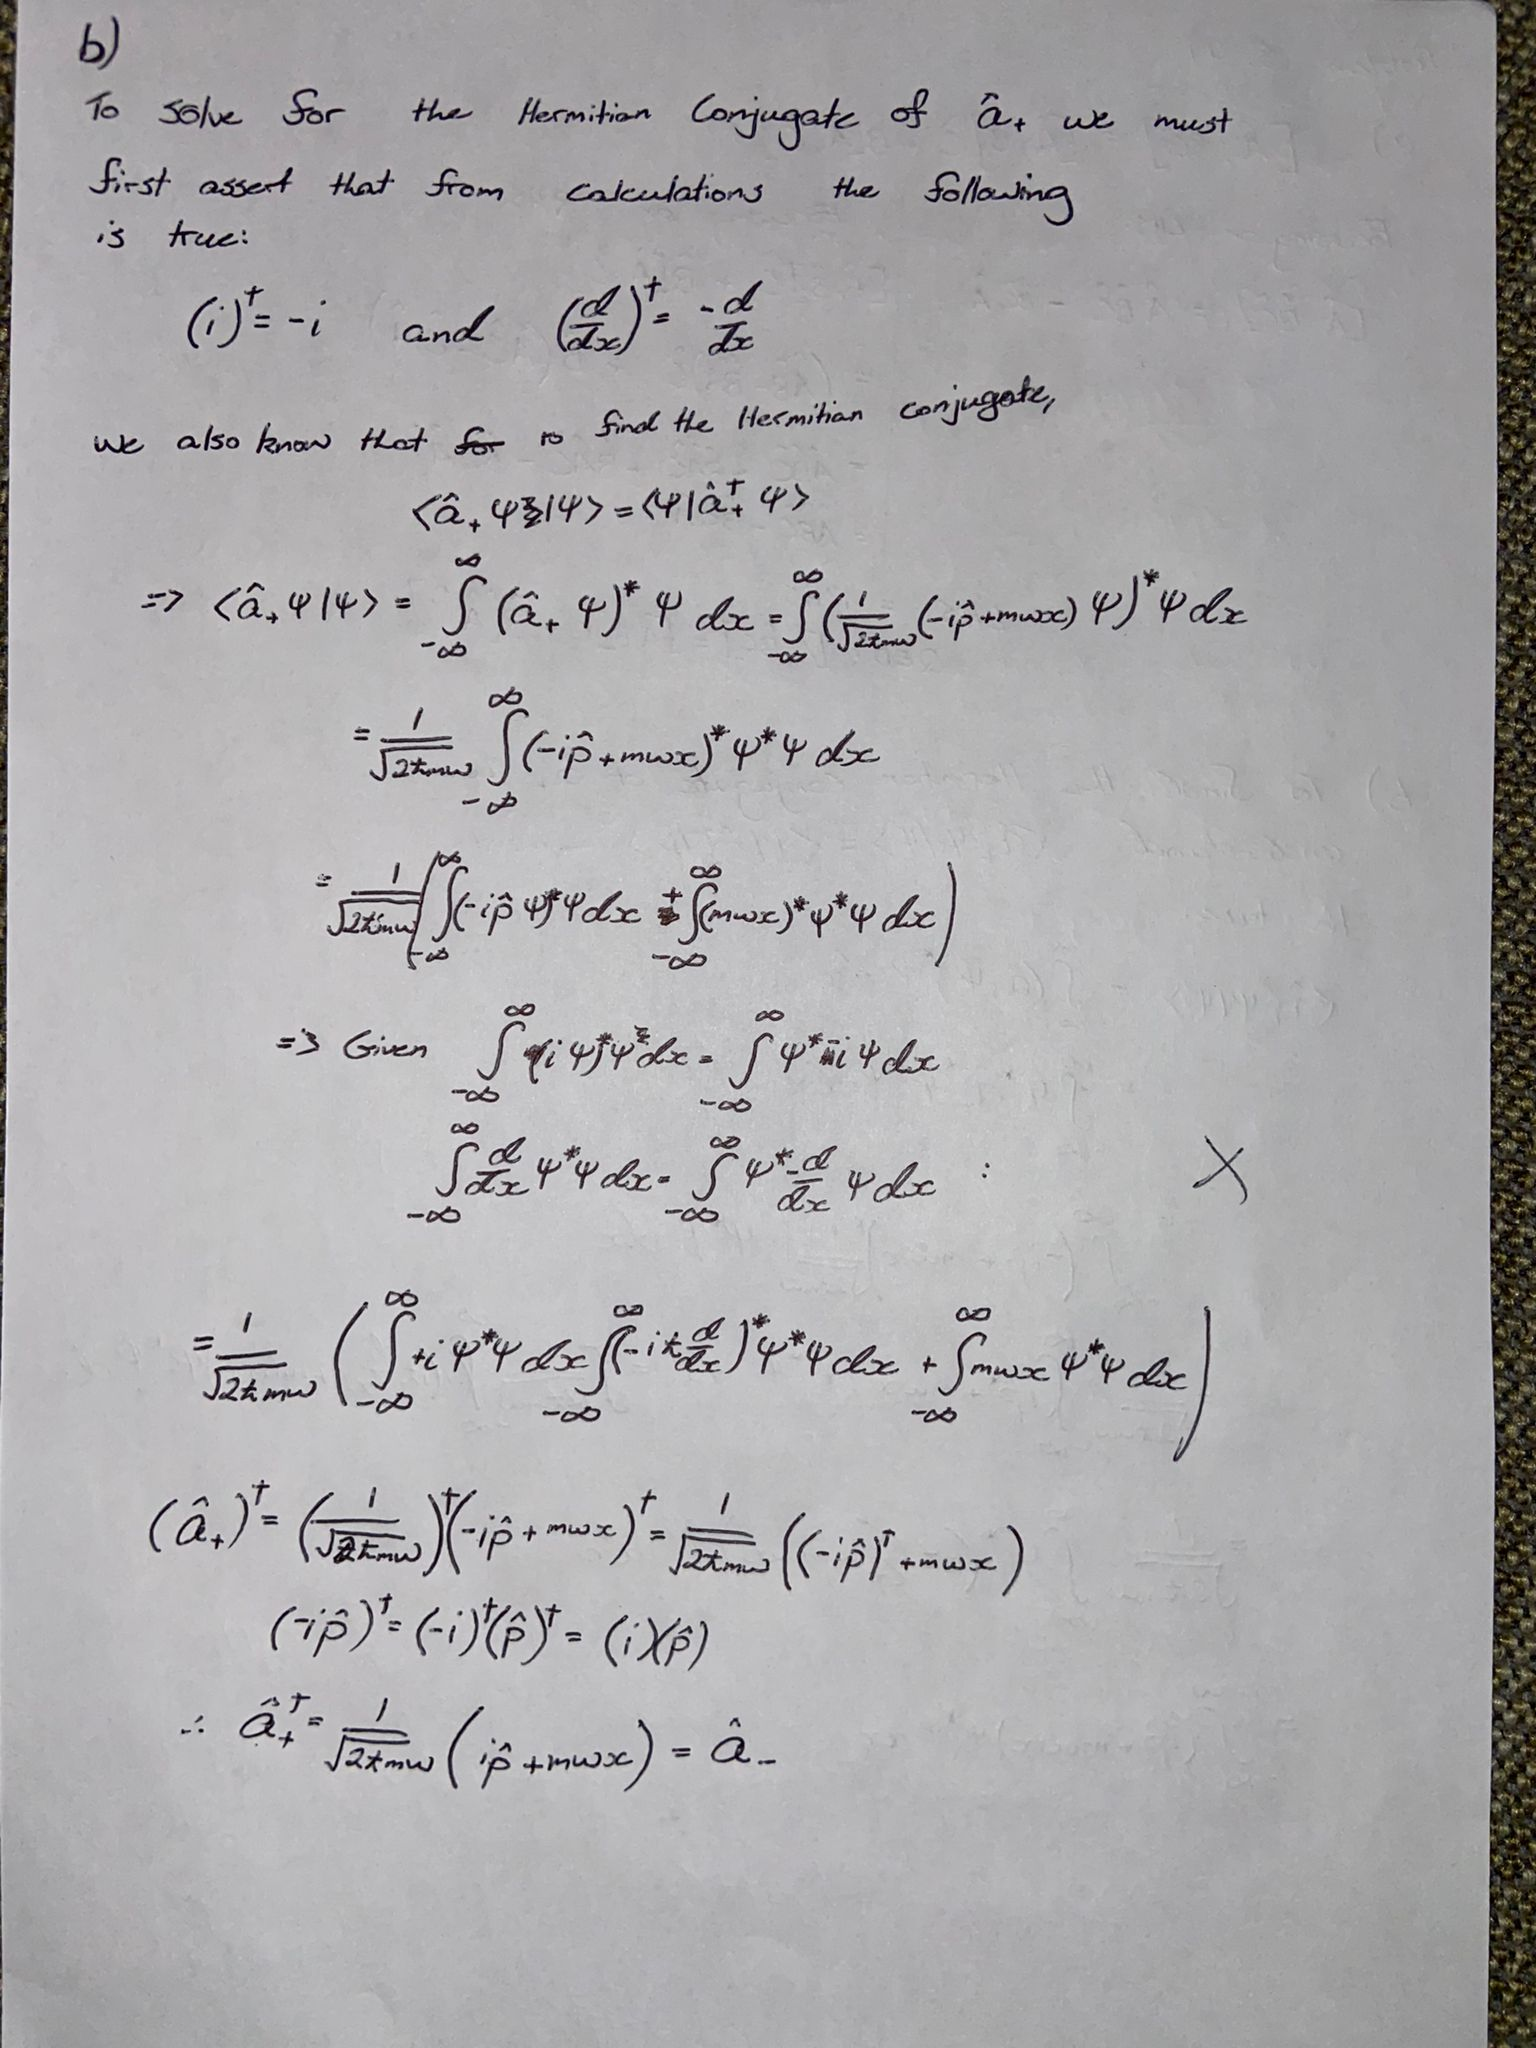 b)
To solve for the Hermitian Conjugate of â₊ we must
first assert that from calculations the following
is true:
(i)† = -i and (d/dx)† = -d/dx
we also know that ~~for~~ to find the Hermitian conjugate,
⟨â₊ Ψ|Ψ⟩ = ⟨Ψ|â₊† Ψ⟩
=> ⟨â₊ Ψ|Ψ⟩ = ∫_{-∞}^{∞} (â₊ Ψ)* Ψ dx = ∫_{-∞}^{∞} (1/√(2ħmω) (-ip̂ + mωx) Ψ)* Ψ dx
= 1/√(2ħmω) ∫_{-∞}^{∞} (-ip̂ + mωx)* Ψ* Ψ dx
= 1/√(2ħmω) ( ∫_{-∞}^{∞} (-ip̂ Ψ)* Ψ dx + ∫_{-∞}^{∞} (mωx)* Ψ* Ψ dx )
=> Given ∫_{-∞}^{∞} (i Ψ)* Ψ dx = ∫_{-∞}^{∞} Ψ* -i Ψ dx
∫_{-∞}^{∞} d/dx Ψ* Ψ dx = ∫_{-∞}^{∞} Ψ* -d/dx Ψ dx : X
= 1/√(2ħmω) ( ∫_{-∞}^{∞} +i Ψ* Ψ dx ∫_{-∞}^{∞} (-iħ d/dx)* Ψ* Ψ dx + ∫_{-∞}^{∞} mωx Ψ* Ψ dx )
(â₊)† = (1/√(2ħmω))† (-ip̂ + mωx)† = 1/√(2ħmω) ((-ip̂)† + mωx)
(-ip̂)† = (-i)†(p̂)† = (i)(p̂)
∴ â₊† = 1/√(2ħmω) (ip̂ + mωx) = â₋